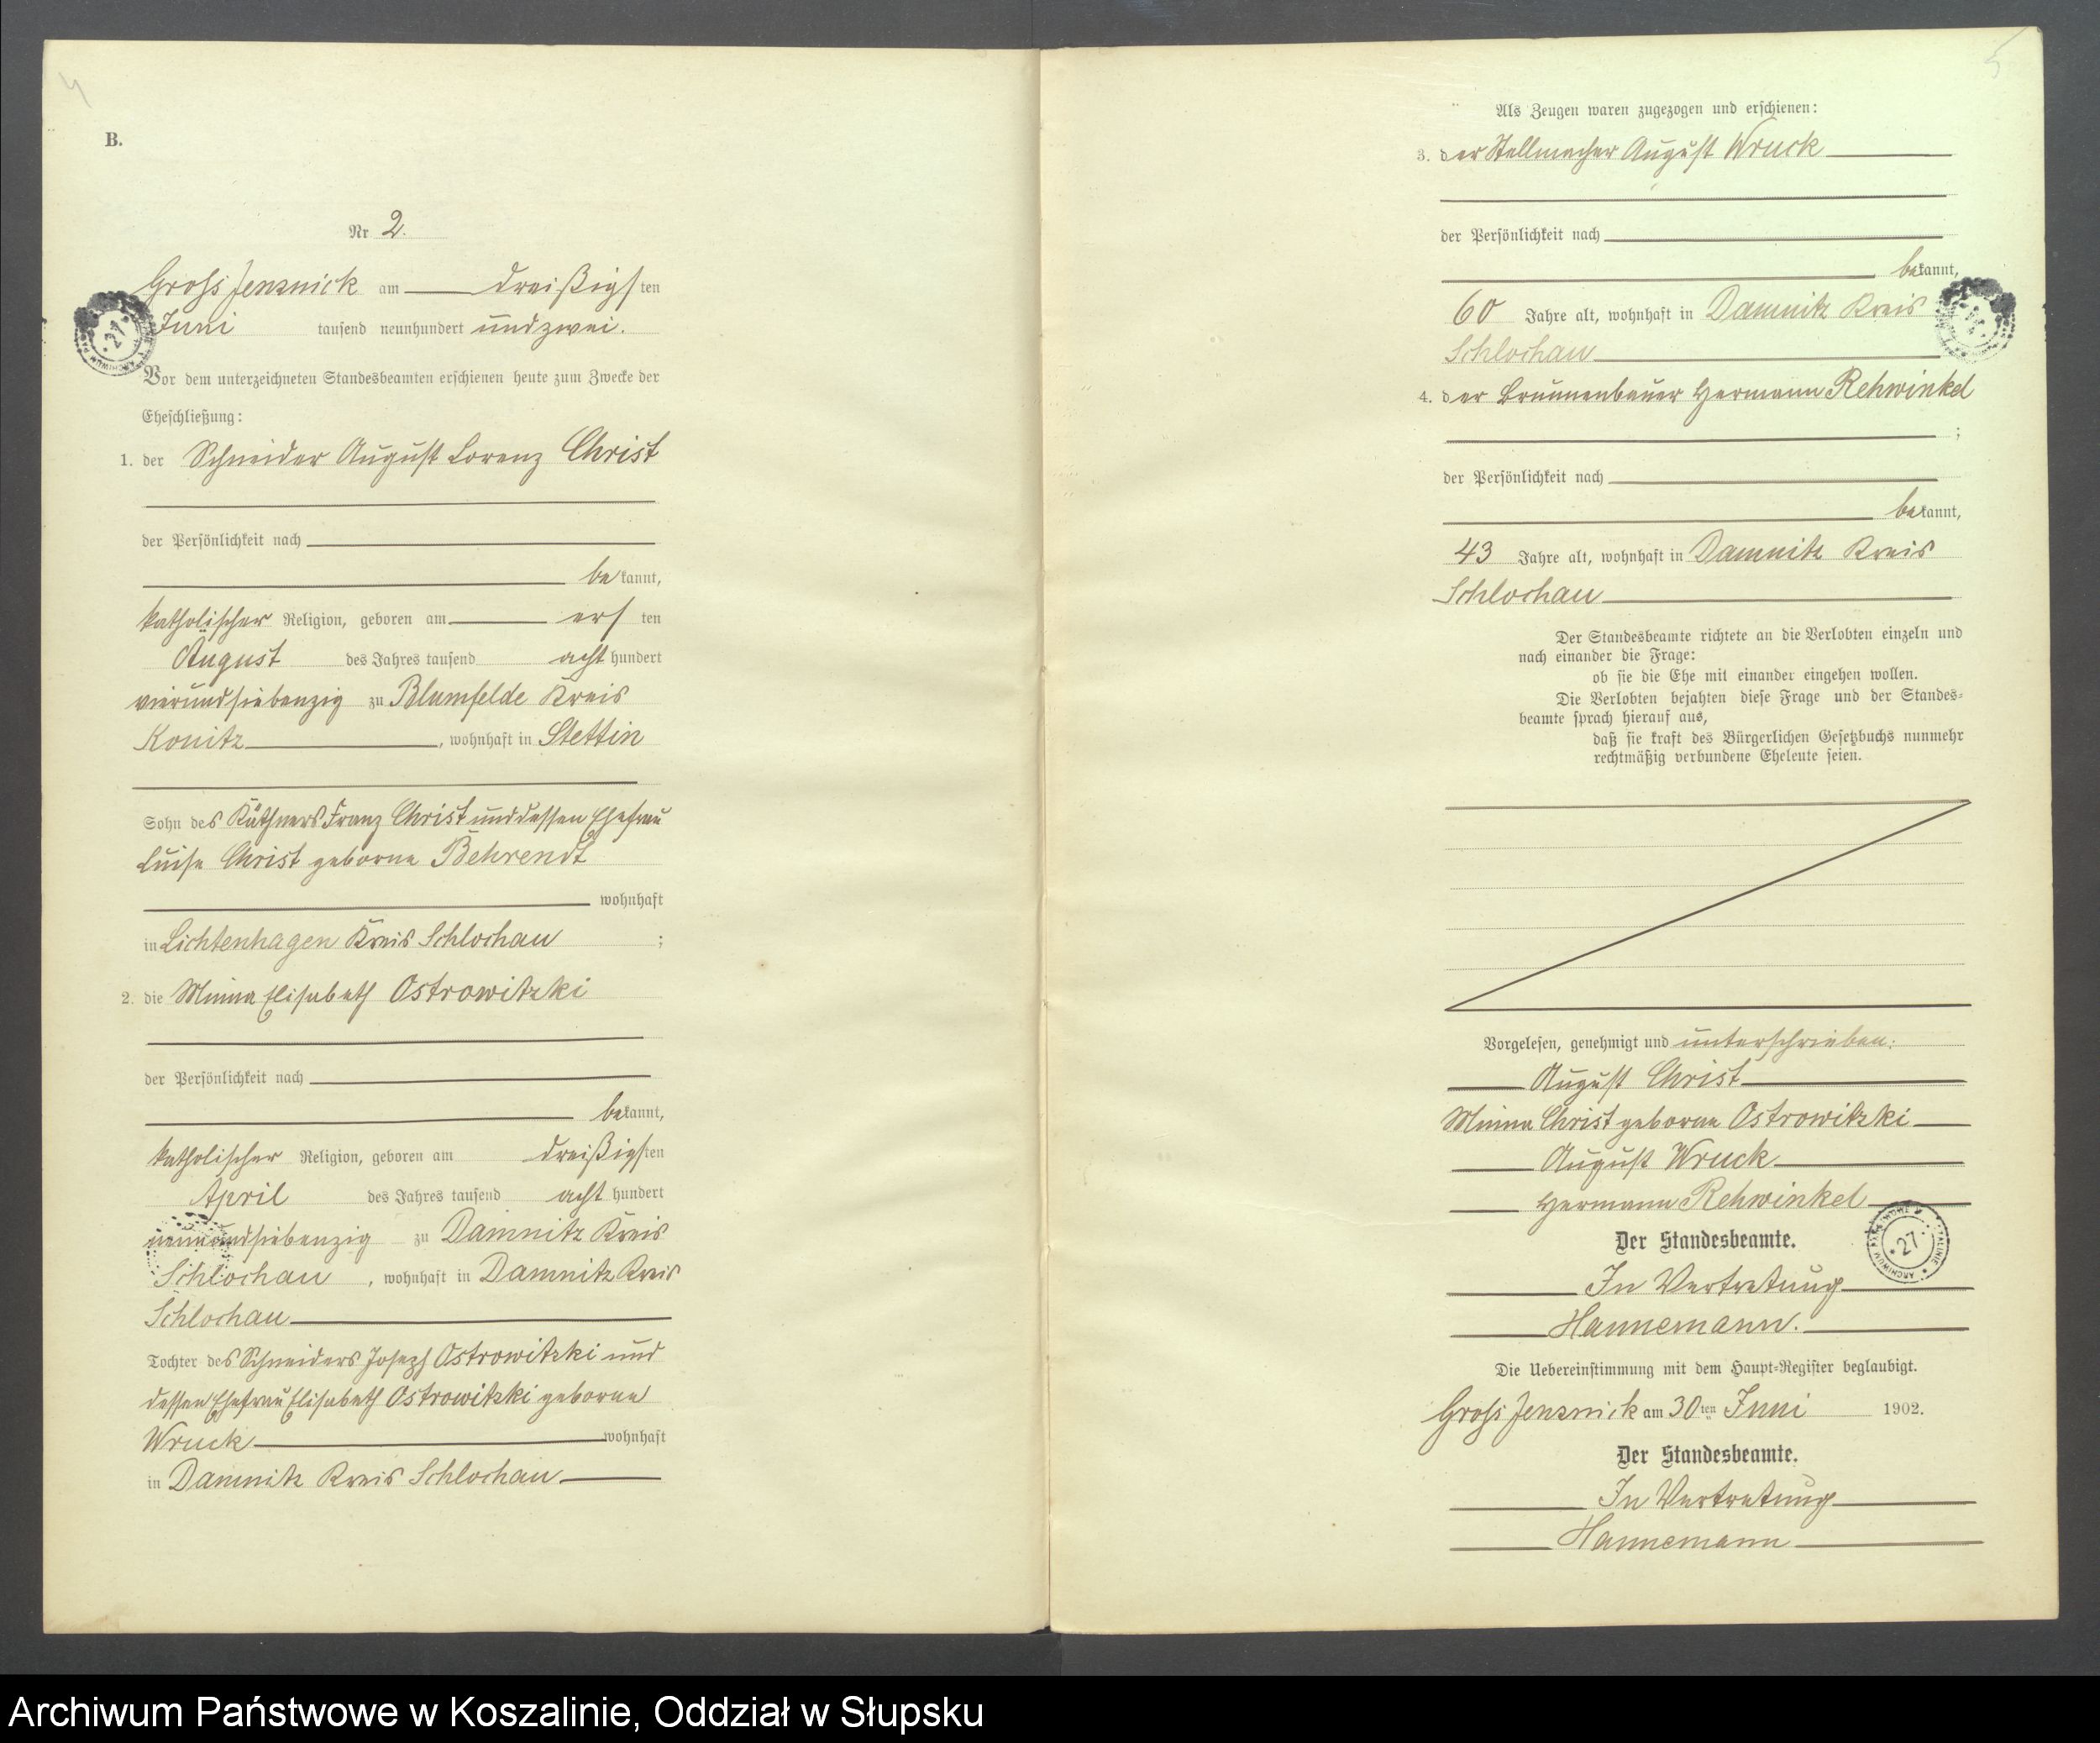 4
B.
Nr 2.
Gross Jenznick am dreißigsten
Juni tausend neunhundert und zwei.
Vor dem unterzeichneten Standesbeamten erschienen heute zum Zwecke der
Eheschließung:
1. der Schneider August Lorenz Christ
der Persönlichkeit nach
bekannt,
katholischer Religion, geboren am ersten
August des Jahres tausend acht hundert
vierundsiebenzig zu Blumfelde Kreis
Konitz, wohnhaft in Stettin
Sohn des Käthners Franz Christ und dessen Ehefrau
Luise Christ geborne Behrendt
wohnhaft
in Lichtenhagen Kreis Schlochau ;
2. die Minna Elisabeth Ostrowitzki
der Persönlichkeit nach
bekannt,
katholischer Religion, geboren am dreißigsten
April des Jahres tausend acht hundert
neunundsiebenzig zu Damnitz Kreis
Schlochau, wohnhaft in Damnitz Kreis
Schlochau
Tochter des Schneiders Joseph Ostrowitzki und
dessen Ehefrau Elisabeth Ostrowitzki geborne
Wruck wohnhaft
in Damnitz Kreis Schlochau
5
Als Zeugen waren zugezogen und erschienen:
3. der Stellmacher August Wruck
der Persönlichkeit nach
bekannt,
60 Jahre alt, wohnhaft in Damnitz Kreis
Schlochau
4. der Brunnenbauer Hermann Rehwinkel
;
der Persönlichkeit nach
bekannt,
43 Jahre alt, wohnhaft in Damnitz Kreis
Schlochau
Der Standesbeamte richtete an die Verlobten einzeln und
nach einander die Frage:
ob sie die Ehe mit einander eingehen wollen.
Die Verlobten bejahten diese Frage und der Standes-
beamte sprach hierauf aus,
daß sie kraft des Bürgerlichen Gesetzbuchs nunmehr
rechtmäßig verbundene Eheleute seien.
Vorgelesen, genehmigt und unterschrieben:
August Christ
Minna Christ geborne Ostrowitzki
August Wruck
Hermann Rehwinkel
Der Standesbeamte.
In Vertretung
Hannemann.
Die Uebereinstimmung mit dem Haupt-Register beglaubigt.
Gross Jenznick am 30ten Juni 1902.
Der Standesbeamte.
In Vertretung
Hannemann
Archiwum Państwowe w Koszalinie, Oddział w Słupsku